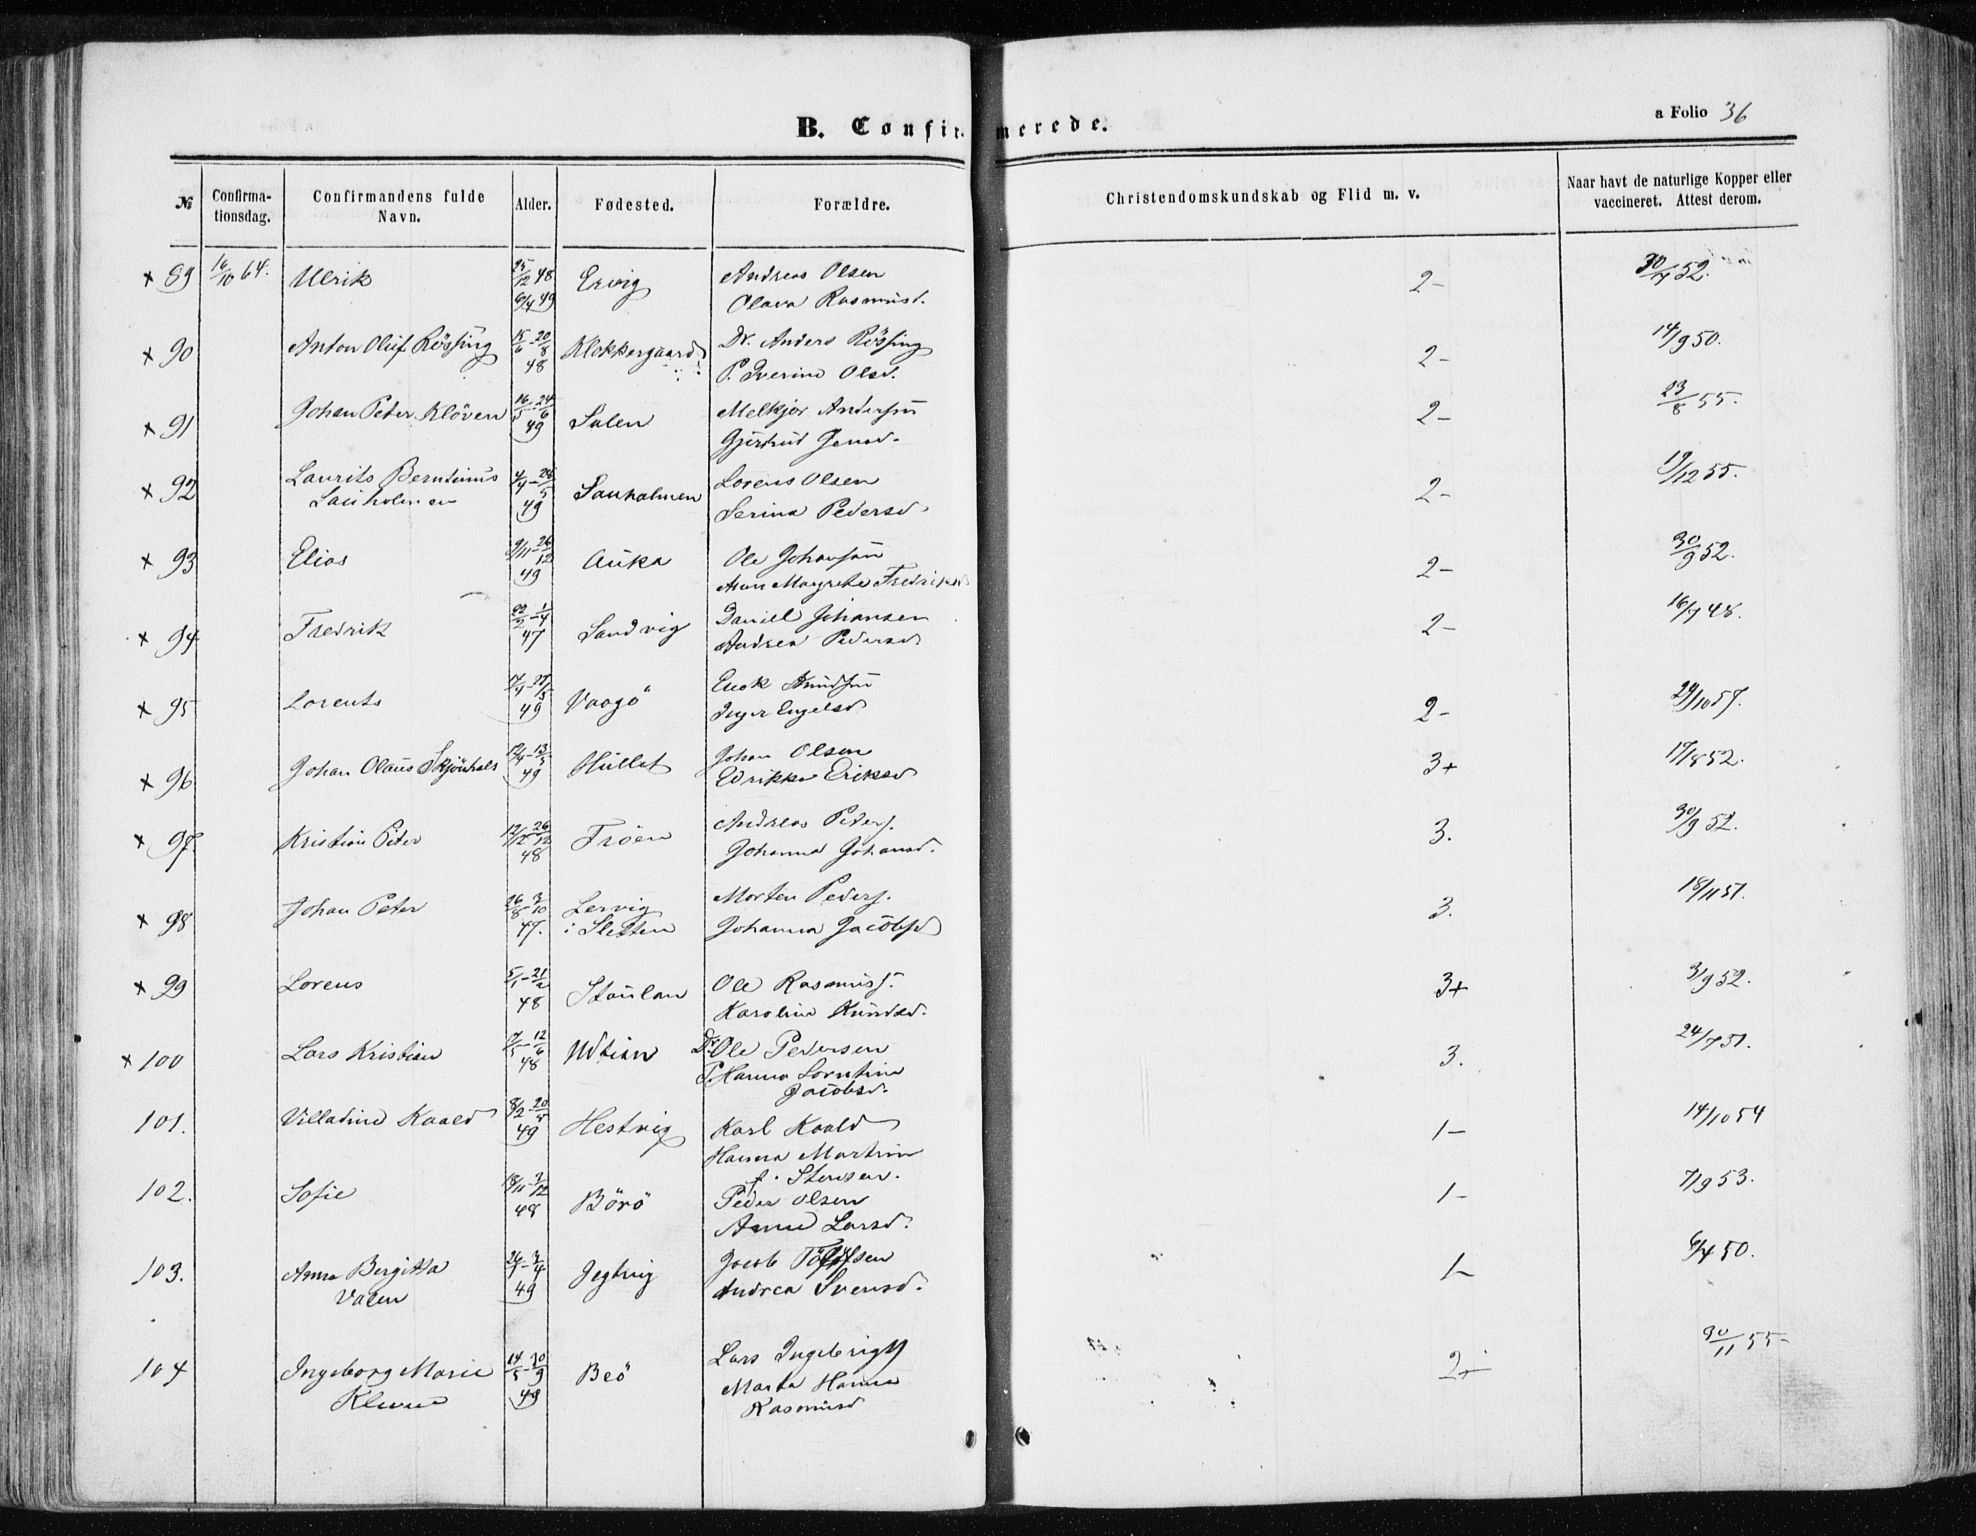 B. Confirmerede.
a Folio 36
№ Confirma-tionsdag. Confirmandens fulde Navn. Alder. Fødested. Forældre. Christendomskundskab og Flid m. v. Naar havt de naturlige Kopper eller vaccineret. Attest derom.
× 89 16/10 64. Ulrik 25/12 48 Ervig Andreas Olsen 2- 30/7 52.
6/4 49 Olava Rasmusd.
× 90 Anton Oluf Røssing 15/6-20/8 Klokkergaard Dr. Anders Røssing 2- 14/9 50.
48 P. Iverine Olsd.
× 91 Johan Peter Kløven 16/5-24/6 Salen Melkjor Anderssen 2- 23/8 55.
49 Gjertrud Jensd.
× 92 Laurits Berntinus Sauholmen Lorens Olsen 2- 19/12 55.
Sauholmen 49 Serina Pedersd.
× 93 Elias 9/11-26/12 Auka Ole Johanssen 2- 30/9 52.
49 Margrete Fredriksd
× 94 Fredrik 22/2-1/4 Sandvig Daniel Johansen 2- 16/9 48.
47 Andrea Pedersd
× 95 Lorents 17/4-27/5 Vaagø Knudsen 2- 29/10 57.
49 Inger Engelsd
× 96 Johan Olaus Skjønhals 12/4-13/5 Hullet Johan Olsen 3+ 17/8 52.
49 Edrikke Eriksd
× 97. Kristian Peter 12/12-26/12 Frøen Andreas Peders. 3. 30/9 52.
48 Johanna Johansd.
× 98 Johan Peter 26/8-3/10 Lervig Morten Peders. 3. 18/11 51.
47. i Sletten Johanna Jacobsd
× 99 Lorens 5/1-21/2 Staulan Ole Rasmuss. 3+ 3/9 52.
48 Karoline Knudsd.
× 100 Lars Kristian 7/5-12/6 Udtian Dr. Ole Pedersen 3. 24/7 51.
48 P. Hanna Lorntine
Jacobsd.
101. Villadine Kaald 8/2-20/5 Hestvig Karl Kaald 1- 14/10 54
49 Hanna Martine
f. Stensen.
102. Sofie 18/11-3/12 Børø Peder Olsen 1- 7/9 53.
48 Anne Larsd.
103. Anna Bergitta 26/1-3/4 Jegtvig Jacob 1- 6/7 50.
Valen 49 Andrea Svensd.
104 Ingeborg Marie 14/5-30/9 Beø Lars Ingebrigts 2+ 30/11 55-
48 Marta Hanna
Rasmusd